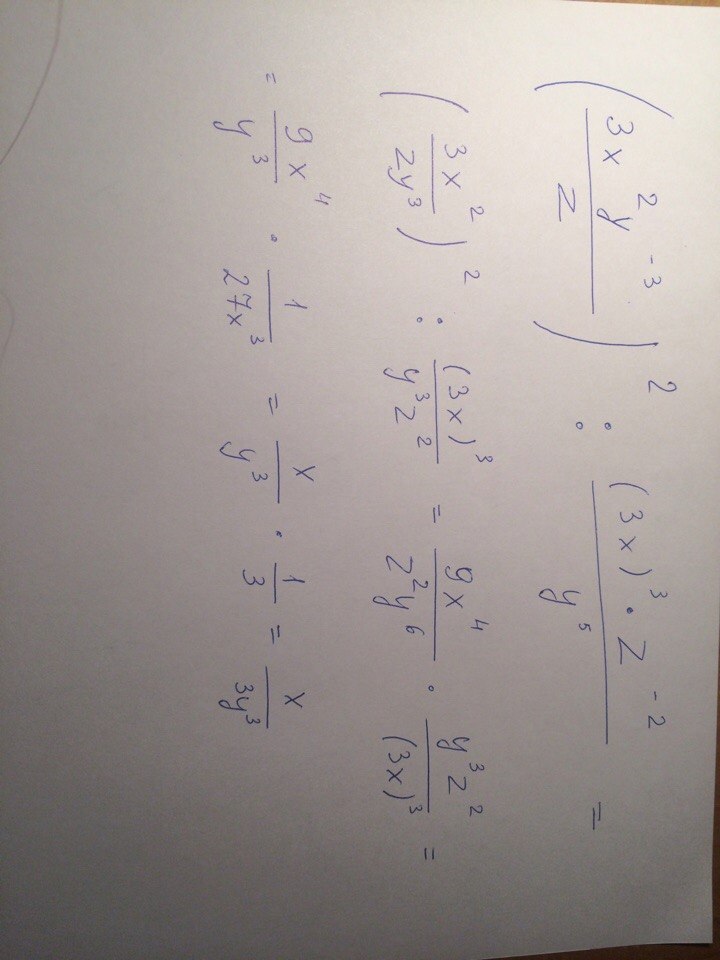 (3x²y⁻³/z)² : (3x)³·z⁻²/y⁵ =
(3x²/zy³)² : (3x)³/y³z² = 9x⁴/z²y⁶ · y³z²/(3x)³ =
= 9x⁴/y³ · 1/27x³ = x/y³ · 1/3 = x/3y³